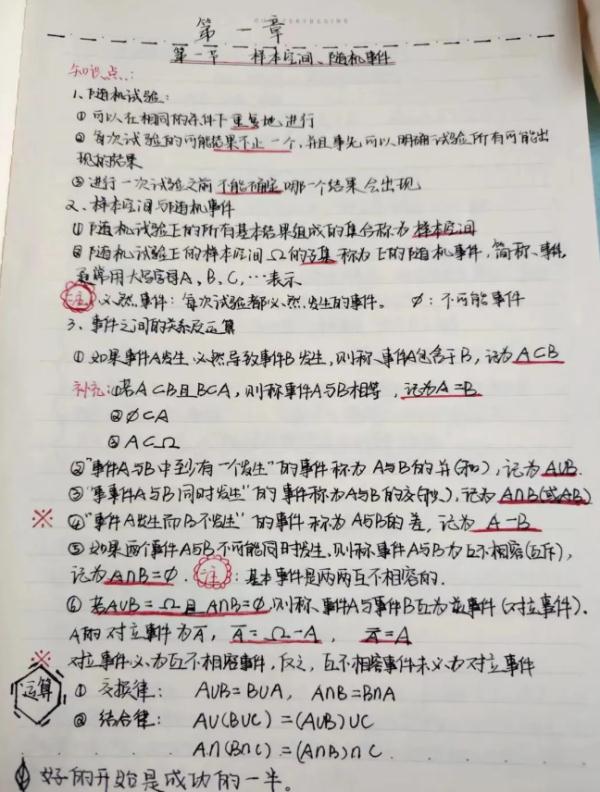 第一章
第一节 样本空间、随机事件
知识点:
1、随机试验:
① 可以在相同的条件下重复地进行
② 每次试验的可能结果不止一个,并且事先可以明确试验所有可能出
现的结果
③ 进行一次试验之前不能确定哪一个结果会出现
2、样本空间与随机事件
① 随机试验E的所有基本结果组成的集合称为样本空间
② 随机试验E的样本空间Ω的子集称为E的随机事件,简称、事件
通常用大写字母A,B,C,…表示
注 必然事件:每次试验都必然发生的事件。 ∅:不可能事件
3、事件之间的关系及运算
① 如果事件A发生必然导致事件B发生,则称事件A包含于B,记为A⊂B
补充:①若A⊂B且B⊂A,则称事件A与B相等,记为A=B
②∅⊂A
③A⊂Ω
②“事件A与B中至少有一个发生”的事件称为A与B的并(和),记为A∪B.
③“事事件A与B同时发生”的事件称为A与B的交(积),记为A∩B(或AB)
※ ④“事件A发生而B不发生”的事件称为A与B的差,记为 A-B
⑤ 如果两个事件A与B不可能同时发生,则称事件A与B为互不相容(互斥),
记为A∩B=∅. 注:基本事件是两两互不相容的.
⑥ 若A∪B=Ω且A∩B=∅,则称事件A与事件B互为逆事件(对立事件).
A的对立事件为A̅,A̅=Ω-A,A̿=A
※ 对立事件必为互不相容事件,反之,互不相容事件未必为对立事件
运算 ① 交换律: A∪B=B∪A, A∩B=B∩A
② 结合律: A∪(B∪C)=(A∪B)∪C
A∩(B∩C)=(A∩B)∩C
好的开始是成功的一半。